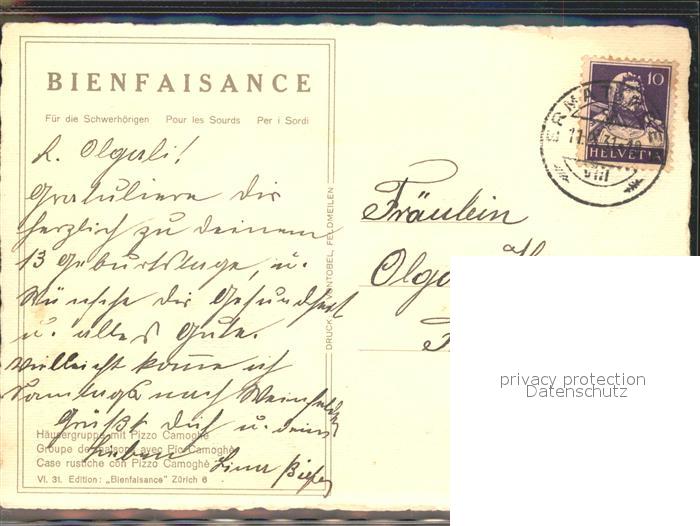 BIENFAISANCE
Für die Schwerhörigen Pour les Sourds Per i Sordi
L. Olgali!
Gratuliere dir
herzlich zu deinem
13 Geburtstage, u.
Wünsche dir Gesundheit
u. alles Gute.
Vielleicht komme ich
Samstags nach Weinfelden
Grüßt dich u. deine
Lieben
Häusergruppe mit Pizzo Camoghè
Groupe de maisons avec Pic Camoghè
Case rustiche con Pizzo Camoghè
VI. 31. Edition: „Bienfaisance" Zürich 6
DRUCK VONTOBEL, FELDMEILEN
10
HELVETIA
VIII
Fräulein
Olga
privacy protection
Datenschutz